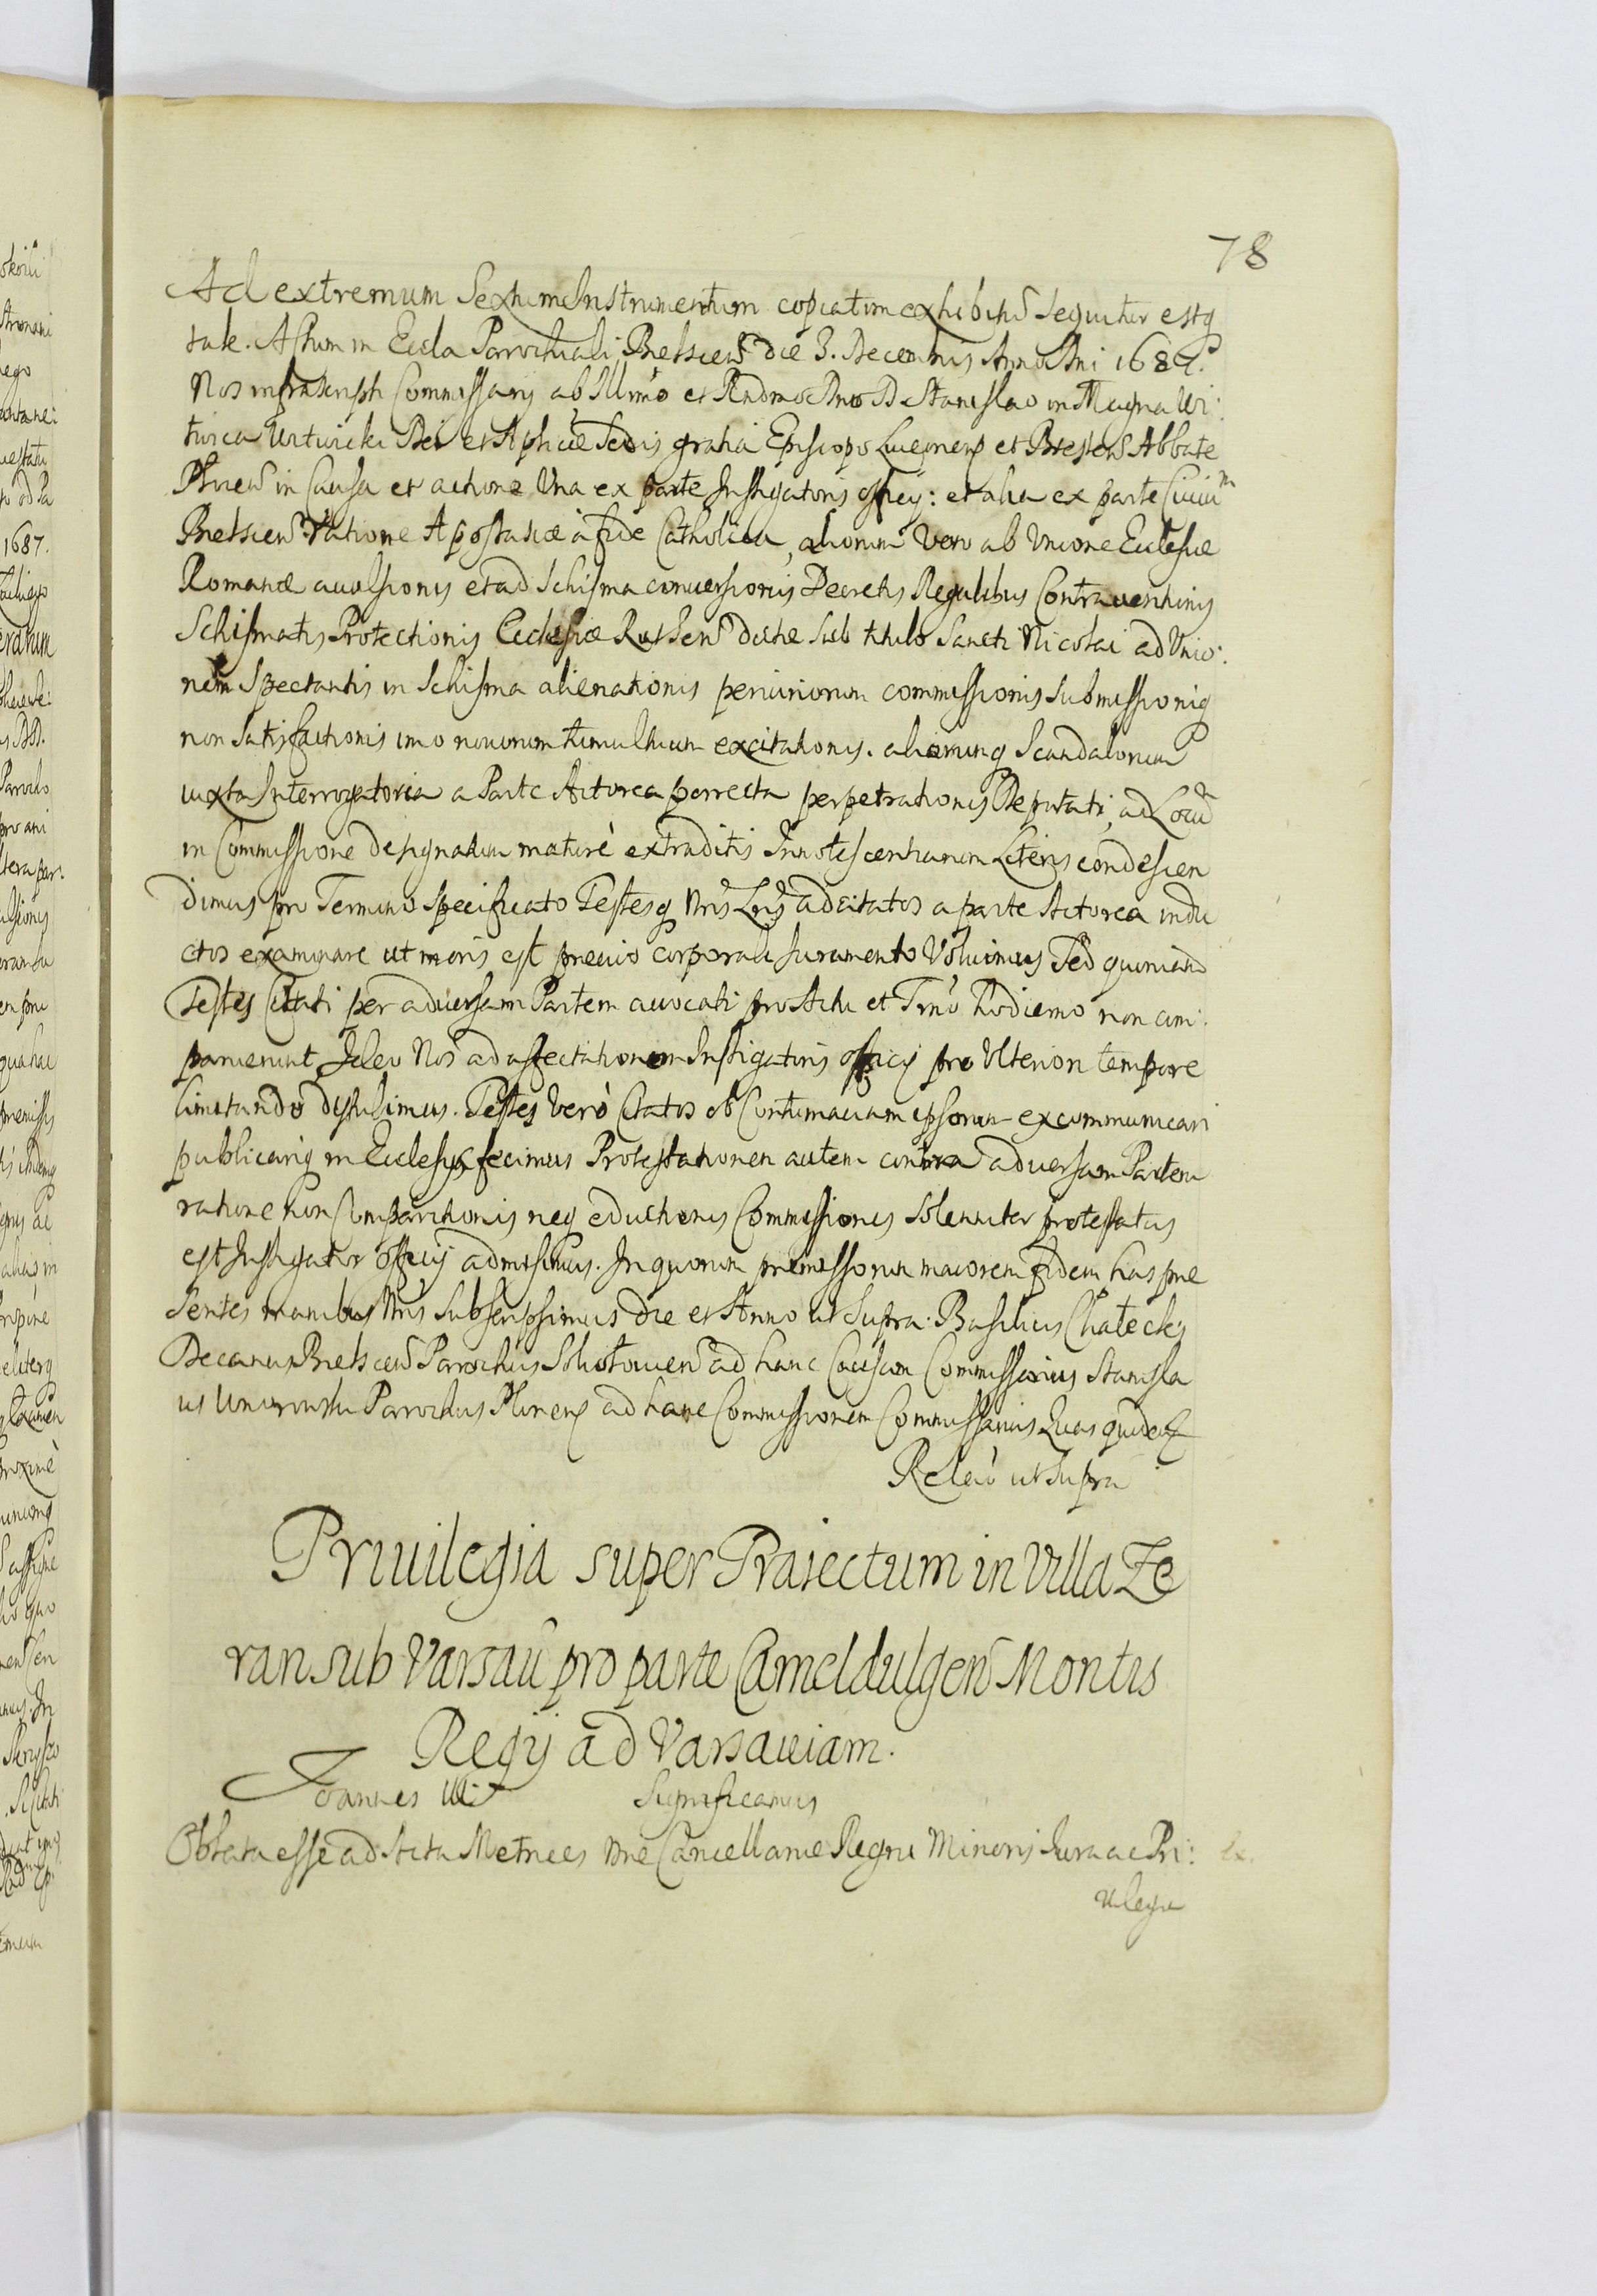 78
Ad extremum Sextum Instrumentum copiatim exhibitu Sequitur estq
tale. Actum in Eccla Parochiali Bielscen die 3. Decembris Anno Dni 1687.
Nos infrascripti Commissarij ab Illmo et Rndmo Dno D Stanislao in Magna Wi:
twica Witwicki Dei et Aplicæ Sedis gratia Episcopo Luceorien et Bresten Abbate
Plocen in Causa et actione Una ex parte Instigatoris officij: et alia ex parte Ciuiu
Bielscen Ratione Apostasiæ à fide Catholica, aliorum Vero ab Vnione Ecclesiæ
Romanæ auulsionis et ad Schisma conuersionis Decretis Regalibus Contrauentionis
Schismatis Protectionis Ecclesiæ Ruthen dictæ sub titulo Sancti Nicolai ad Vnio:
nem Spectantis in Schisma alienationis periuriorum commissionis submissioniq
non satisfactionis imo nouorum tumultuum excitationis. aliorumq Scandalorum
iuxta Interrogatoria a Parte Actorea porrecta perpetrationis Deputati, ad Locu
in Commissione designatum maturè extraditis Innotescentiarum Literis condescen
dimus pro Termino specificato Testesq Nris Lris adcitatos a parte Actorea indu
ctos examinare ut moris est preuio corporali Iuramento Voluimus Sed quoniam
Testes Citati per aduersam Partem auocati pro Actu et Trno hodierno non com:
paruerunt, Ideo Nos ad affectationem Instigatoris officij pro Ulteriori tempore
limitando distulimus. Testes Verò Citatos ob Contumaciam ipsorum excommunicari
publicariq in Ecclesijs fecimus Protestationem autem contra aduersam Partem
ratione non Comparitionis neq eductionis Commissionis Solenniter protestatus
est Instigator officij admisimus. In quorum premissorum maiorem fidem has pre
sentes manibus Nris subscripsimus die et Anno ut Supra. Basilius Chalecki
Decanus Bielscen Parochus ad hanc Causam Commissarius Stanisla
us Parochus ad hanc Commissionem Commissarius Quas quidem
Relaō ut supra
Priuilegia super Traiectum in Villa Ze
ran sub Varsau pro parte Cameldulgen Montis
Regij ad Varsauiam.
Joannes III Significamus
Oblata esse ad Acta Metrices Nræ Cancellariæ Regni Minoris Iura ac Pri:
uilegia